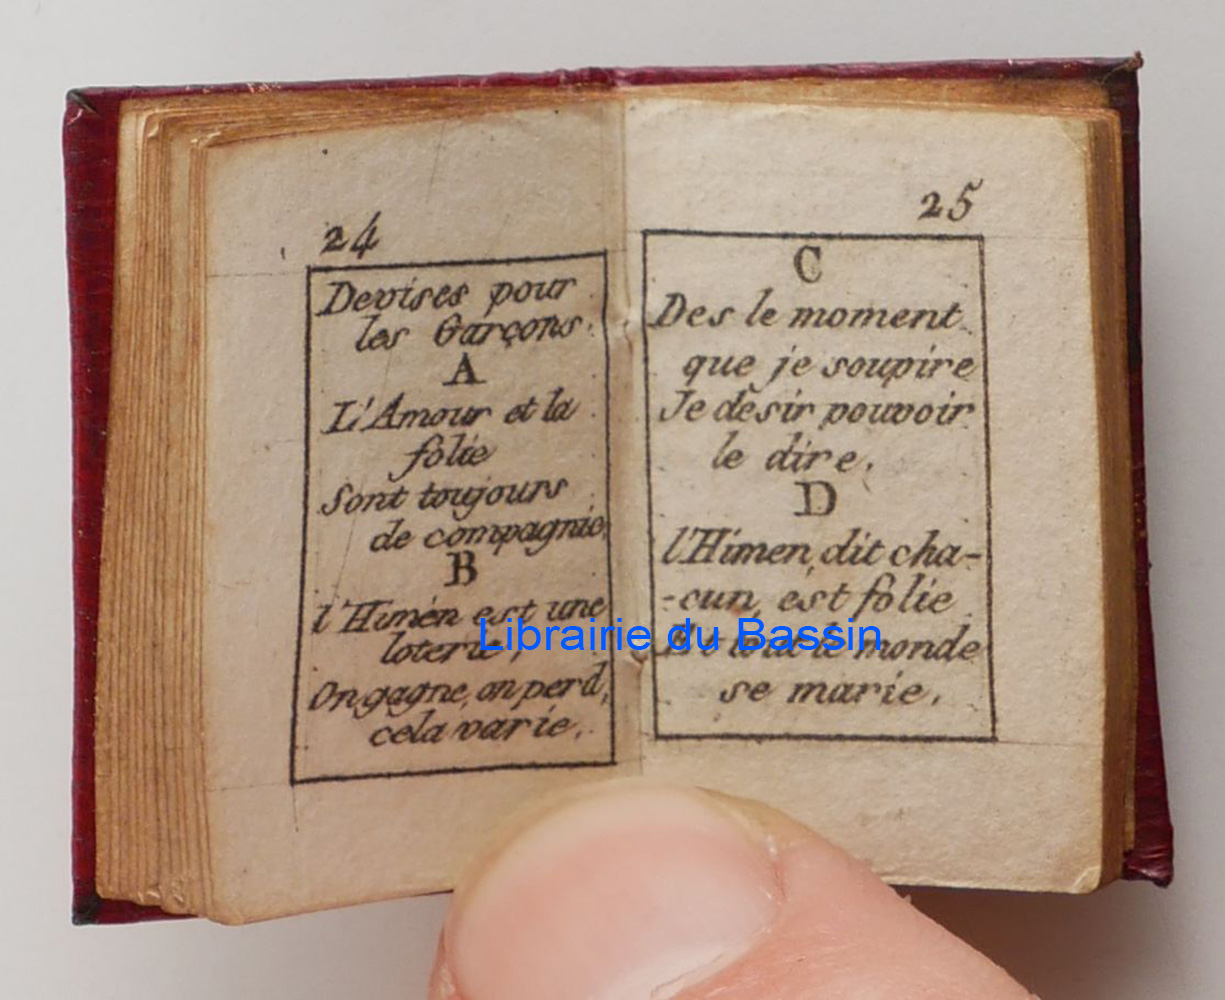 24
Devises pour
les Garçons.
A
L'Amour et la
folie
Sont toujours
de compagnie,
B
l'Himen est une
loterie,
On gagne, on perd,
cela varie.
25
C
Des le moment
que je soupire
Je desir pouvoir
le dire.
D
l'Himen, dit cha-
-cun, est folie
Et tout le monde
se marie.
Librairie du Bassin